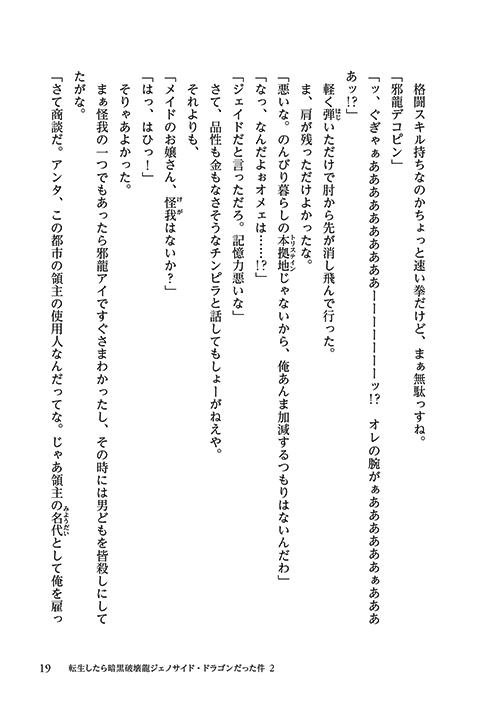 格闘スキル持ちなのかちょっと速い拳だけど、まぁ無駄っすね。
「邪龍デコピン」
「ッ、ぐぎゃぁあああああああああーーーーーーーッ!?　オレの腕がぁああああああぁあああ
あッ!?」
軽く弾いただけで肘から先が消し飛んで行った。
ま、肩が残っただけよかったな。
「悪いな。のんびり暮らしの本拠地じゃないから、俺あんま加減するつもりはないんだわ」
「なっ、なんだよぉオメェは……!?」
「ジェイドだと言っただろ。記憶力悪いな」
さて、品性も金もなさそうなチンピラと話してもしょーがねえや。
それよりも、
「メイドのお嬢さん、怪我はないか?」
「はっ、はひっ!」
そりゃあよかった。
まぁ怪我の一つでもあったら邪龍アイですぐさまわかったし、その時には男どもを皆殺しにして
たがな。
「さて商談だ。アンタ、この都市の領主の使用人なんだってな。じゃあ領主の名代として俺を雇っ
19　転生したら暗黒破壊龍ジェノサイド・ドラゴンだった件 2